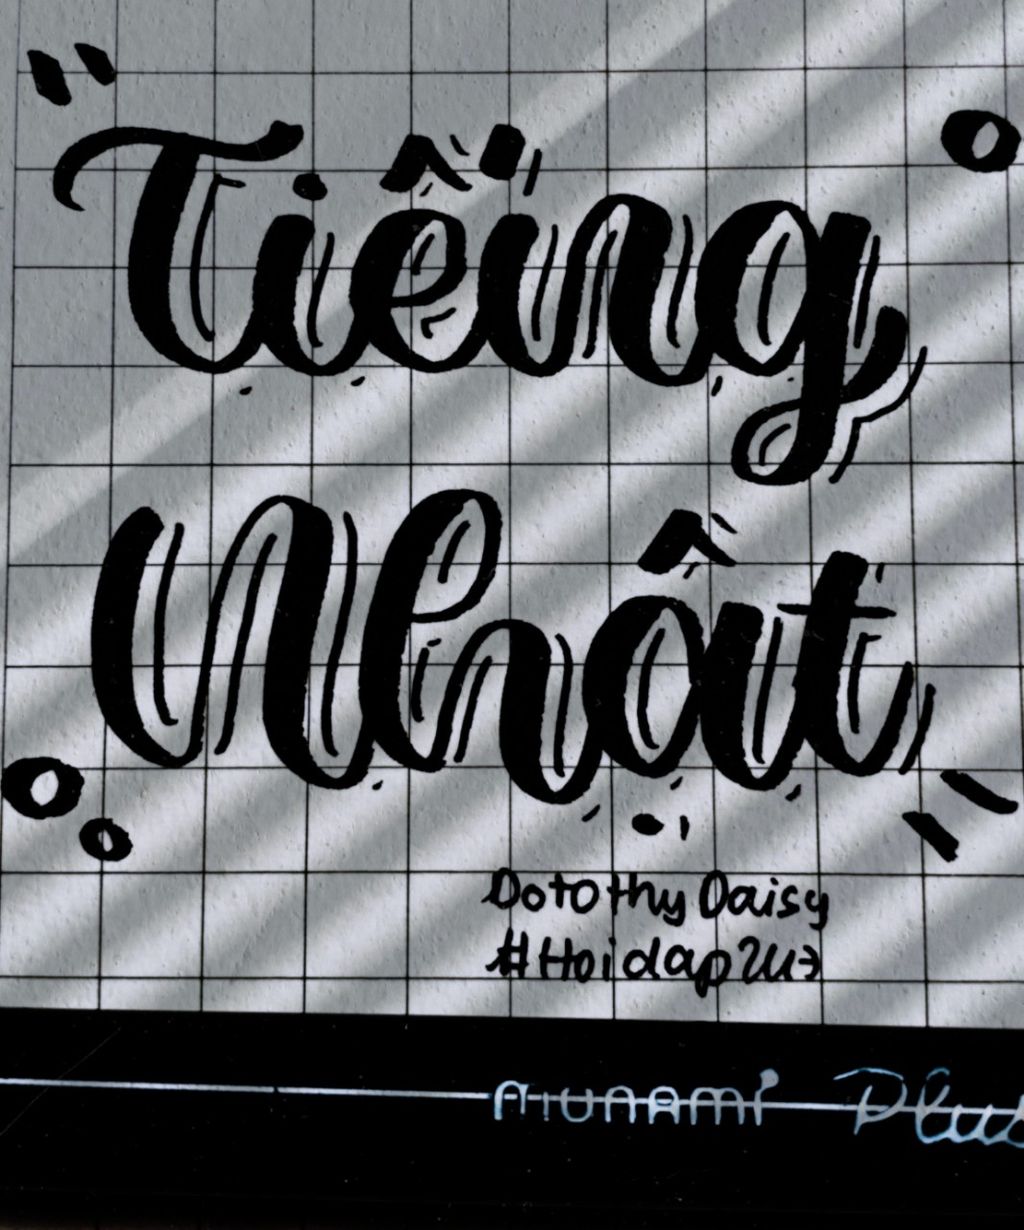 Tiếng
Nhật
Dotothy Daisy
#Hoidap247
MONAMI Plus